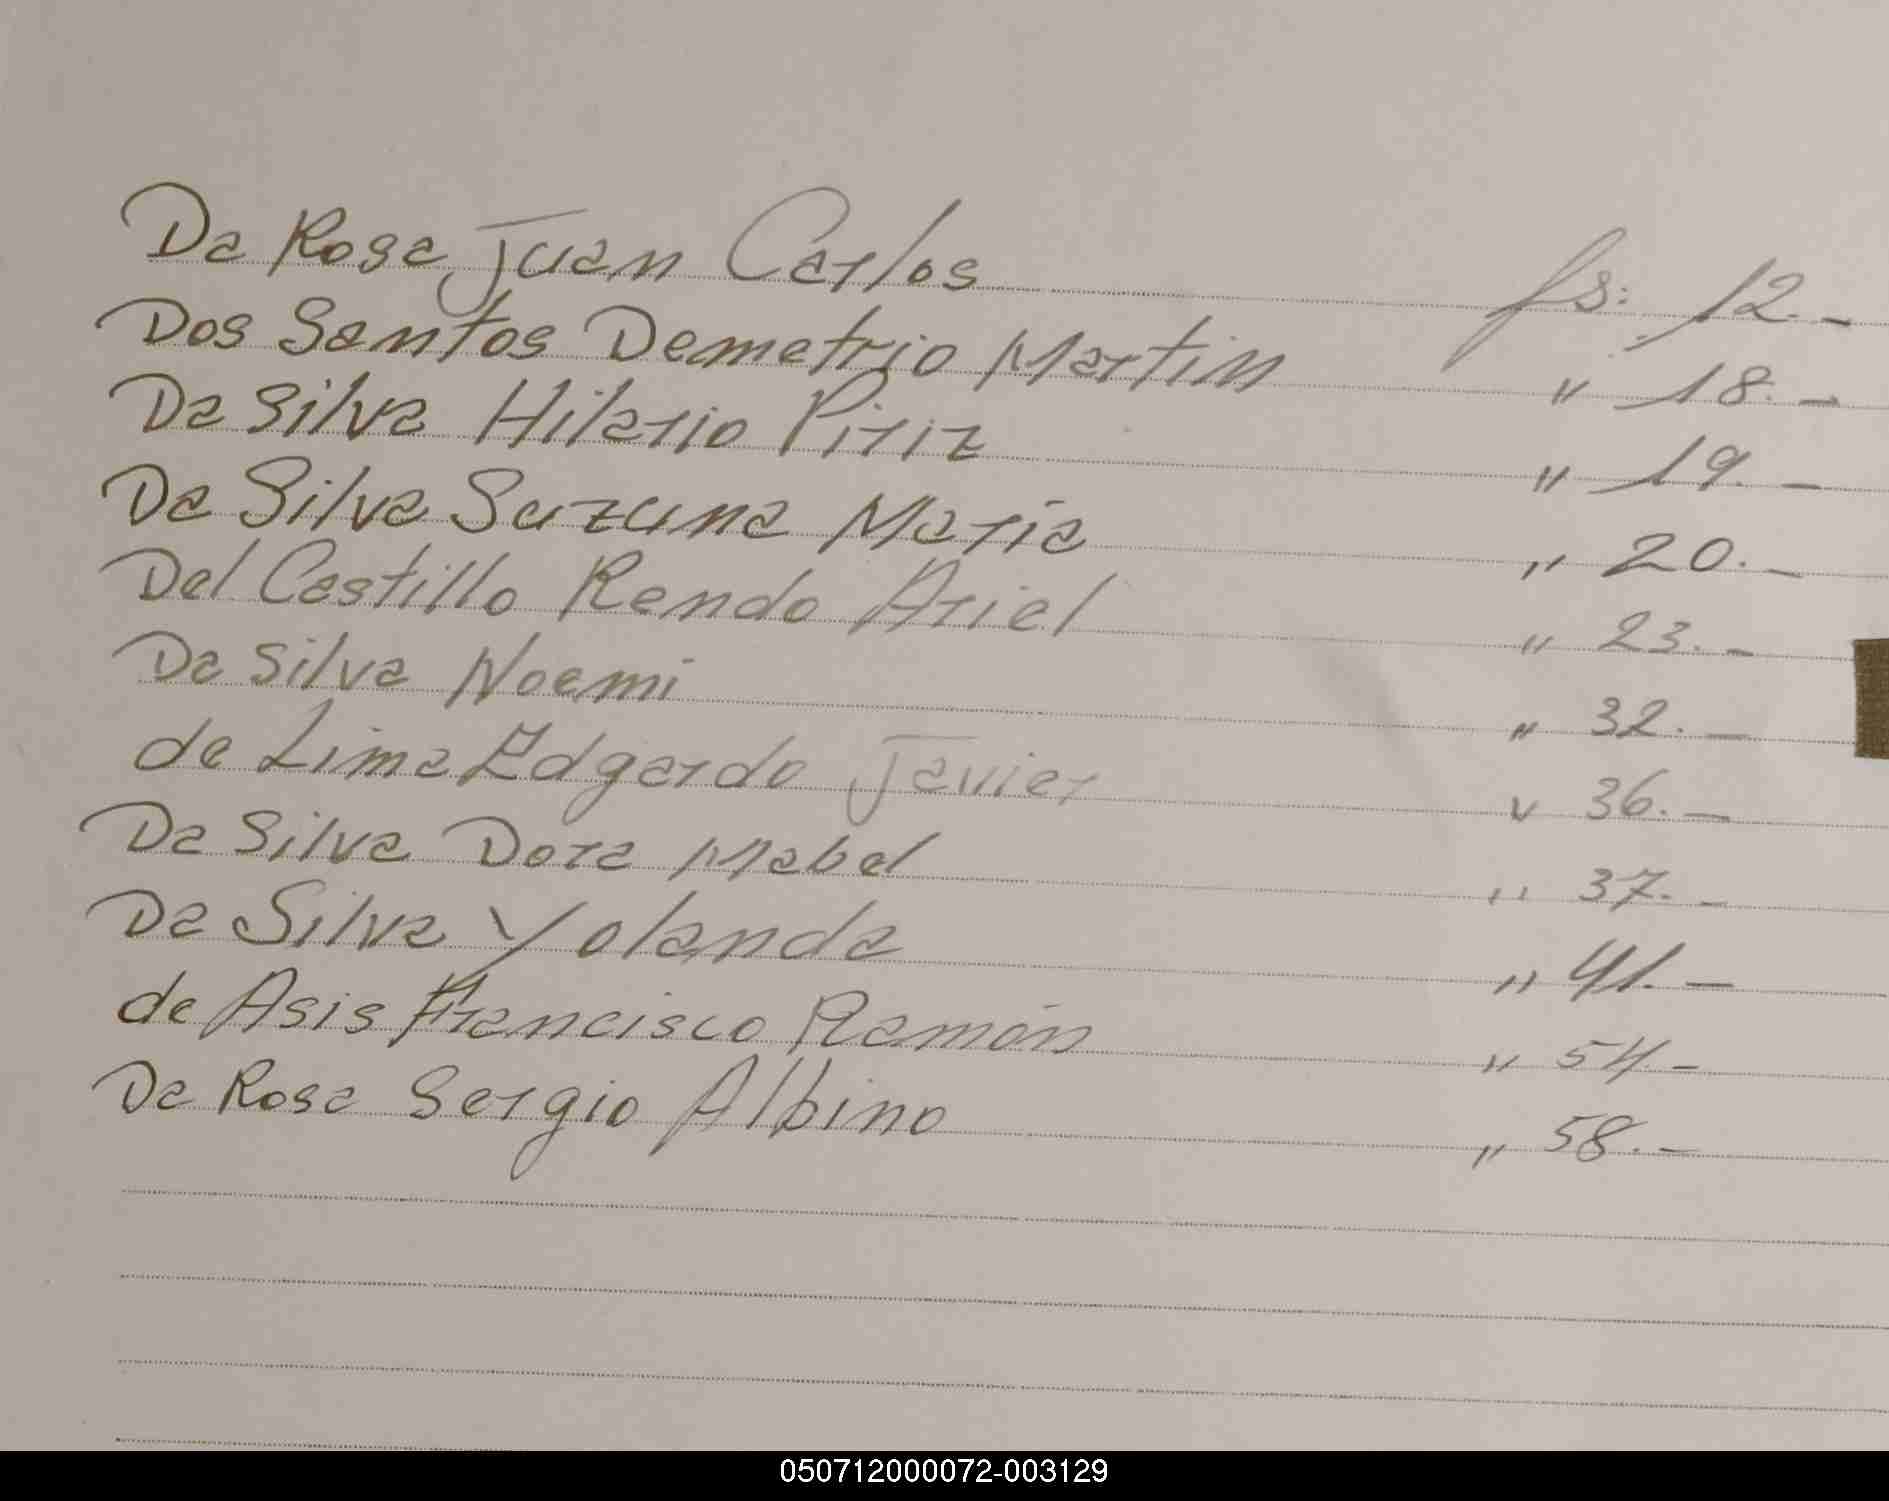 Da Rosa Juan Carlos fs: 12.-
Dos Santos Demetrio Martin " 18.-
Da Silva Hilario Piriz " 19.-
Da Silva Suzuna Maria " 20.-
Del Castillo Rendo Ariel " 23.-
Da Silva Noemi " 32.-
de Lima Edgardo Javier " 36.-
Da Silva Dora Mabel " 37.-
Da Silva Yolanda " 41.-
de Asis Francisco Ramón " 54.-
Da Rosa Sergio Albino " 58.-
050712000072-003129